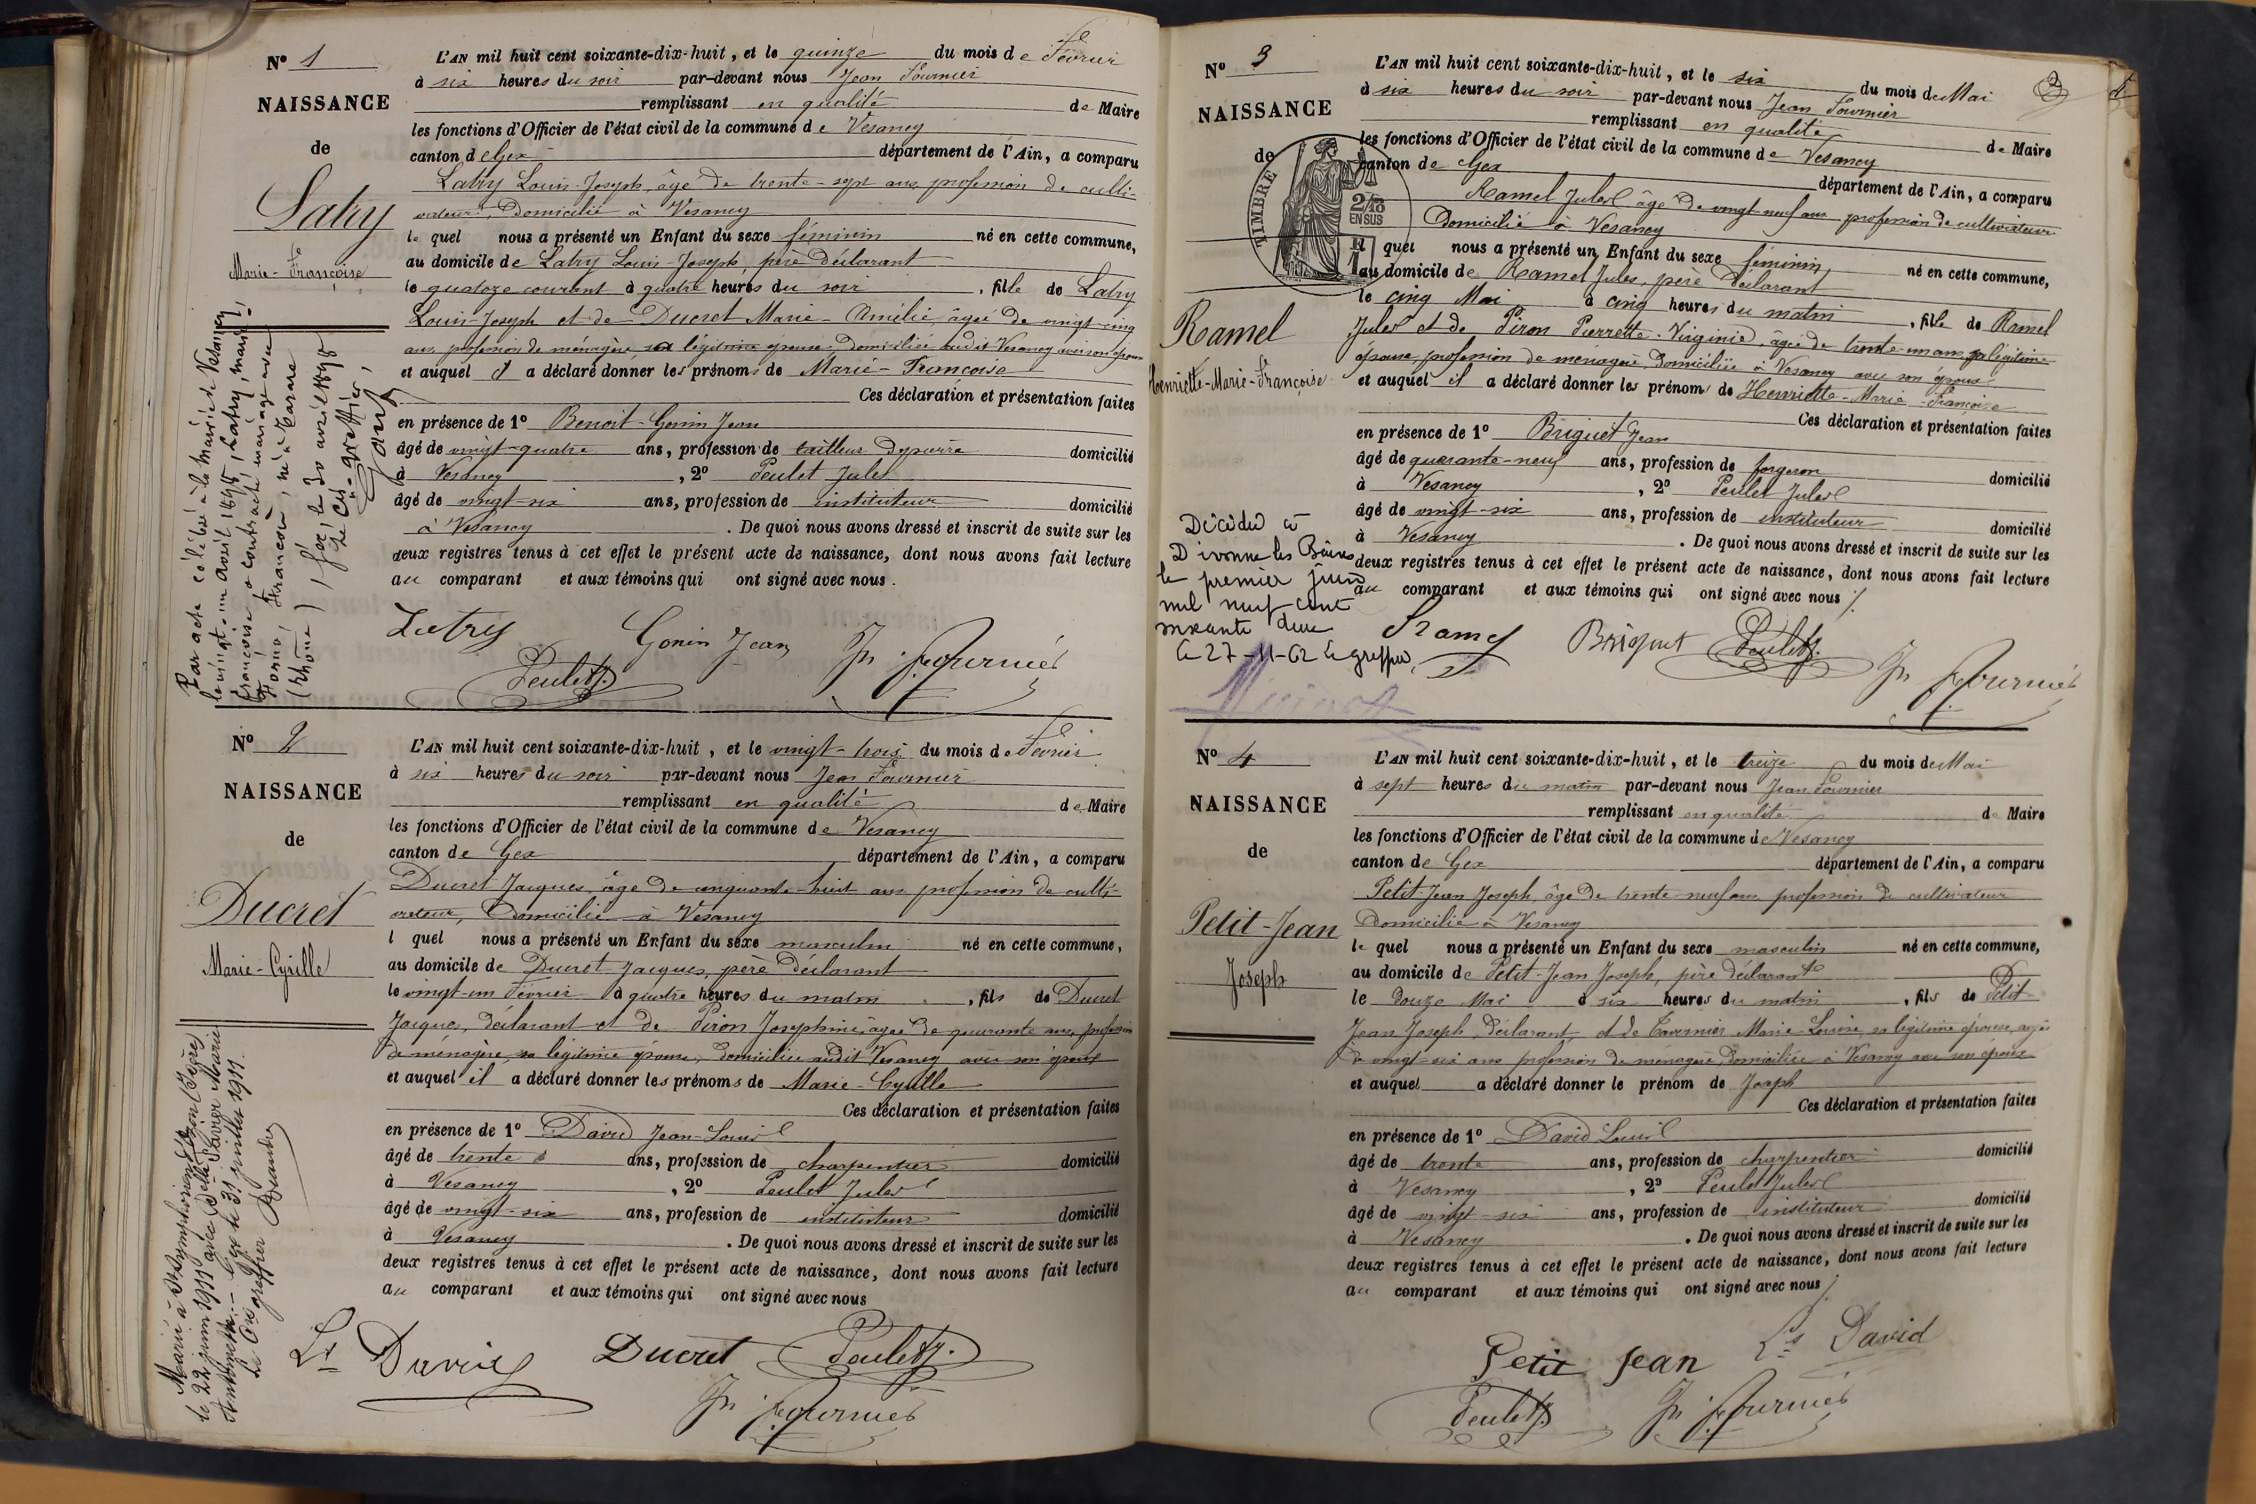 N° 1
NAISSANCE
de
Latry
Marie-Françoise
L'AN mil huit cent soixante-dix-huit, et le quinze du mois de Février
à six heures du soir par-devant nous Jean Fournier
remplissant en qualité de Maire
les fonctions d'Officier de l'état civil de la commune de Vesancy
canton de Gex département de l'Ain, a comparu
Latry Louis-Joseph, âgé de trente-sept ans, profession de culti-
vateur, domicilié à Vesancy
le quel nous a présenté un Enfant du sexe féminin né en cette commune,
au domicile de Latry Louis-Joseph, père déclarant
le quatoze courant à quatre heures du soir, fille de Latry
Louis-Joseph et de Ducret Marie-Amélie âgée de vingt-cinq
ans, profession de ménagère sa légitime épouse domiciliée audit Vesancy avec son époux
et auquel il a déclaré donner les prénoms de Marie-Françoise
Ces déclaration et présentation faites
en présence de 1° Benoit-Gonin Jean
âgé de vingt-quatre ans, profession de tailleur de pierre domicilié
à Vesancy, 2° Peulet Jules
âgé de vingt-six ans, profession de instituteur domicilié
à Vesancy. De quoi nous avons dressé et inscrit de suite sur les
deux registres tenus à cet effet le présent acte de naissance, dont nous avons fait lecture
au comparant et aux témoins qui ont signé avec nous.
Latry Gonin Jean Jn Fournier
Peulet J.
Par acte célébré à la mairie de Vesancy
le vingt-un avril 1898, Latry, Marie-
Françoise a contracté mariage avec
Françou, né à Tarare
(Rhône) / Gex, le 30 avril 1898
Le Cis-greffier,
N° 2
NAISSANCE
de
Ducret
Marie-Cyrille
L'AN mil huit cent soixante-dix-huit, et le vingt-trois du mois de Février
à six heures du soir par-devant nous Jean Fournier
remplissant en qualité de Maire
les fonctions d'Officier de l'état civil de la commune de Vesancy
canton de Gex département de l'Ain, a comparu
Ducret Jacques, âgé de cinquante-huit ans profession de culti-
vateur, domicilié à Vesancy
l quel nous a présenté un Enfant du sexe masculin né en cette commune,
au domicile de Ducret Jacques, père déclarant
le vingt-un Février à quatre heures du matin, fils de Ducret
Jacques, déclarant et de Piron Josephine, âgée de quarante ans, profession
de ménagère, sa légitime épouse, domiciliée audit Vesancy avec son époux
et auquel il a déclaré donner les prénoms de Marie-Cyrille
Ces déclaration et présentation faites
en présence de 1° David Jean-Louis
âgé de trente ans, profession de charpentier domicilié
à Vesancy, 2° Peulet Jules
âgé de vingt-six ans, profession de instituteur domicilié
à Vesancy. De quoi nous avons dressé et inscrit de suite sur les
deux registres tenus à cet effet le présent acte de naissance, dont nous avons fait lecture
au comparant et aux témoins qui ont signé avec nous
Ls David Ducret Peulet J.
Jn Fournier
Marié à St Symphorien d'Ozon (Isère)
le 22 juin 1911 avec Delle Marie
Antoinette. - Gex le 31 juillet 1911.
Le Cis greffier
N° 3
NAISSANCE
de
TIMBRE
2/10
EN SUS
Ramel
Henriette-Marie-Françoise
3
L'AN mil huit cent soixante-dix-huit, et le six du mois de Mai
à six heures du soir par-devant nous Jean Fournier
remplissant en qualité de Maire
les fonctions d'Officier de l'état civil de la commune de Vesancy
canton de Gex département de l'Ain, a comparu
Ramel Jules âgé de vingt-neuf ans profession de cultivateur
Domicilié à Vesancy
l quel nous a présenté un Enfant du sexe féminin né en cette commune,
au domicile de Ramel Jules, père déclarant
le cinq Mai à cinq heures du matin, fille de Ramel
Jules et de Piron Pierrette-Virginie, âgée de trente-un ans, sa légitime
épouse, profession de ménagère, domiciliée à Vesancy avec son époux
et auquel il a déclaré donner les prénom de Henriette-Marie-Françoise
Ces déclaration et présentation faites
en présence de 1° Briguet Jean
âgé de quarante-neuf ans, profession de forgeron domicilié
à Vesancy, 2° Peulet Jules
âgé de vingt-six ans, profession de instituteur domicilié
à Vesancy. De quoi nous avons dressé et inscrit de suite sur les
deux registres tenus à cet effet le présent acte de naissance, dont nous avons fait lecture
au comparant et aux témoins qui ont signé avec nous
Ramel Briguet Peulet J.
Jn Fournier
Décédée à
Divonne les Bains
le premier juin
mil neuf cent
soixante deux
Le 27-11-62 Le greffier,
N° 4
NAISSANCE
de
Petit-Jean
Joseph
L'AN mil huit cent soixante-dix-huit, et le treize du mois de Mai
à sept heures du matin par-devant nous Jean Fournier
remplissant en qualité de Maire
les fonctions d'Officier de l'état civil de la commune de Vesancy
canton de Gex département de l'Ain, a comparu
Petit-Jean Joseph, âgé de trente-neuf ans profession de cultivateur
Domicilié à Vesancy
le quel nous a présenté un Enfant du sexe masculin né en cette commune,
au domicile de Petit-Jean Joseph, père déclarant
le douze Mai à six heures du matin, fils de Petit-
Jean Joseph, déclarant, et de Tavernier Marie-Louise sa légitime épouse, âgée
de vingt-six ans profession de ménagère, domiciliée à Vesancy avec son époux
et auquel a déclaré donner le prénom de Joseph
Ces déclaration et présentation faites
en présence de 1° David Louis
âgé de trente ans, profession de charpentier domicilié
à Vesancy, 2° Peulet Jules
âgé de vingt-six ans, profession de instituteur domicilié
à Vesancy. De quoi nous avons dressé et inscrit de suite sur les
deux registres tenus à cet effet le présent acte de naissance, dont nous avons fait lecture
au comparant et aux témoins qui ont signé avec nous
Petit Jean Ls David
Peulet J. Jn Fournier